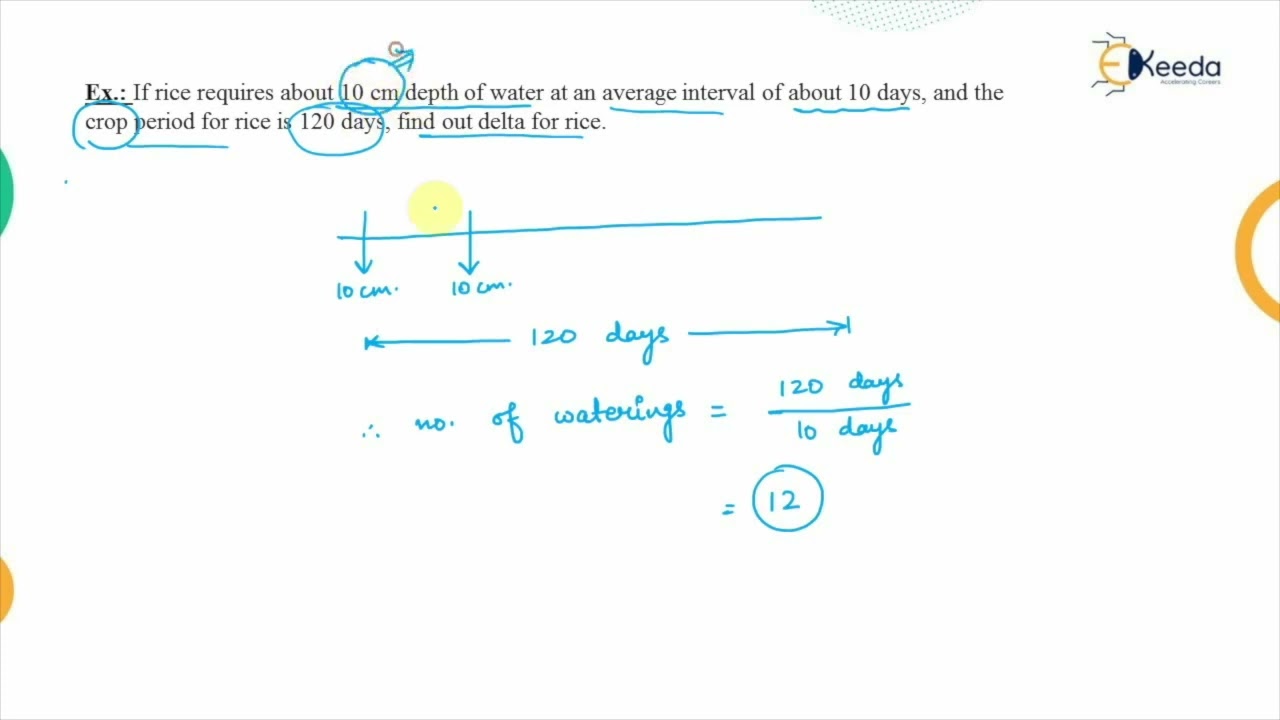 Ex.: If rice requires about 10 cm depth of water at an average interval of about 10 days, and the
crop period for rice is 120 days, find out delta for rice.
EKeeda
Accelerating Careers
10 cm. 10 cm.
120 days
∴ no. of waterings = 120 days
10 days
= 12